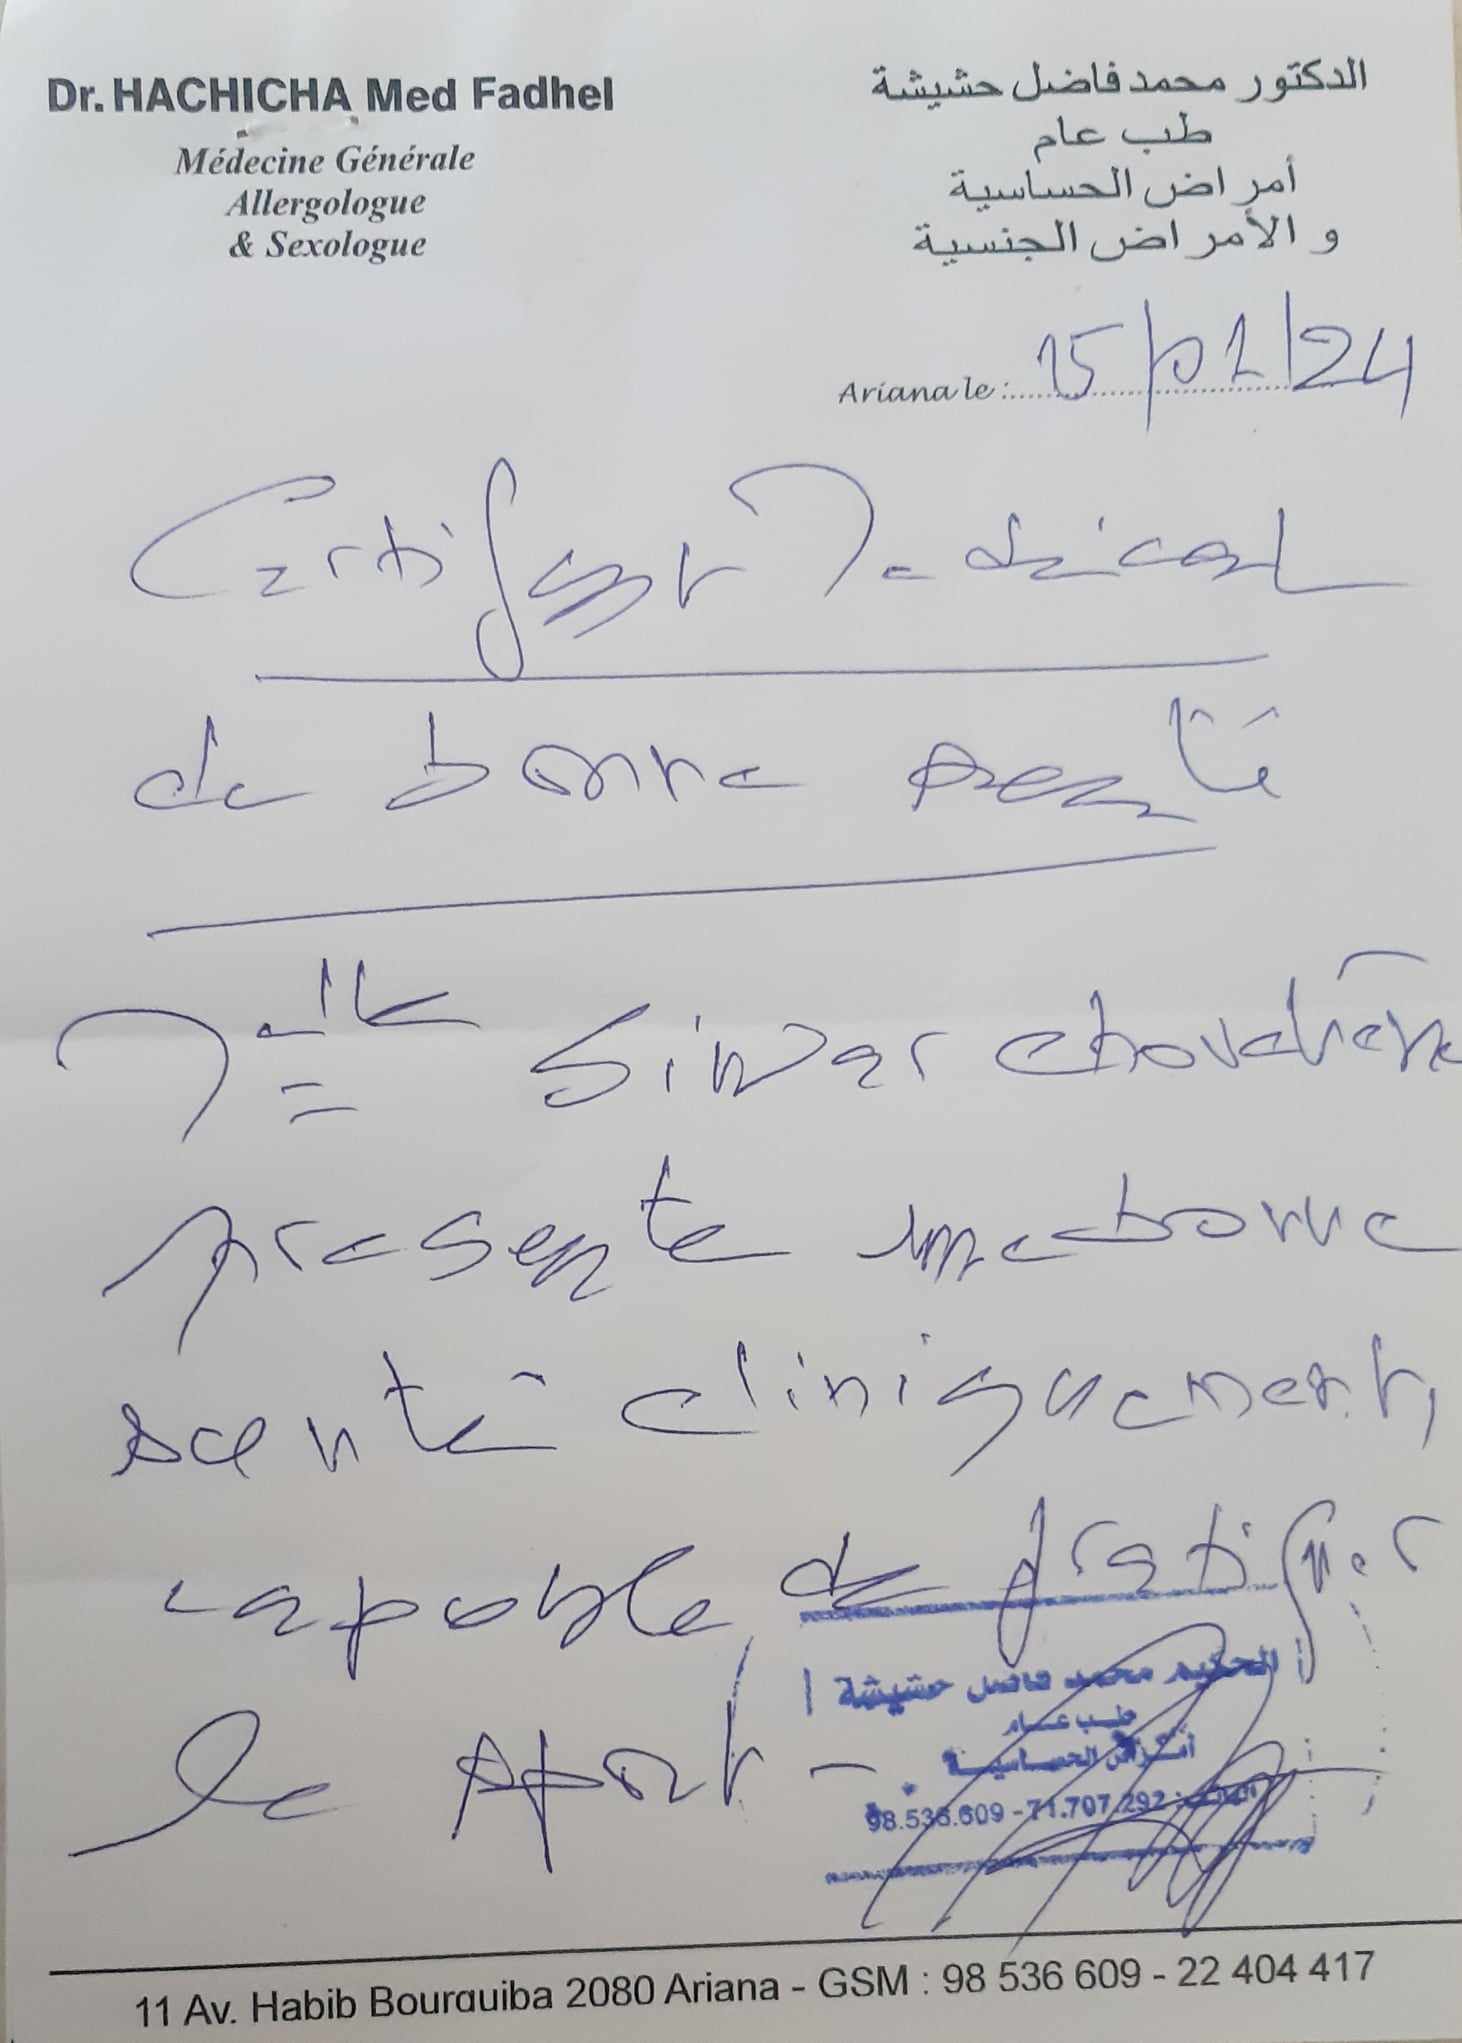 Dr. HACHICHA Med Fadhel
Médecine Générale
Allergologue
& Sexologue
الدكتور محمد فاضل حشيشة
طب عام
أمراض الحساسية
و الأمراض الجنسية
Ariana le : 15/01/24
Certificat Médical
de bonne santé
Melle Siwar
présente une bonne
santé cliniquement,
capable de pratiquer
le sport -
الحكيم محمد فاضل حشيشة
طب عام
أمراض الحساسية
98.536.609 - 71.707.292 : الهاتف
11 Av. Habib Bourguiba 2080 Ariana - GSM : 98 536 609 - 22 404 417